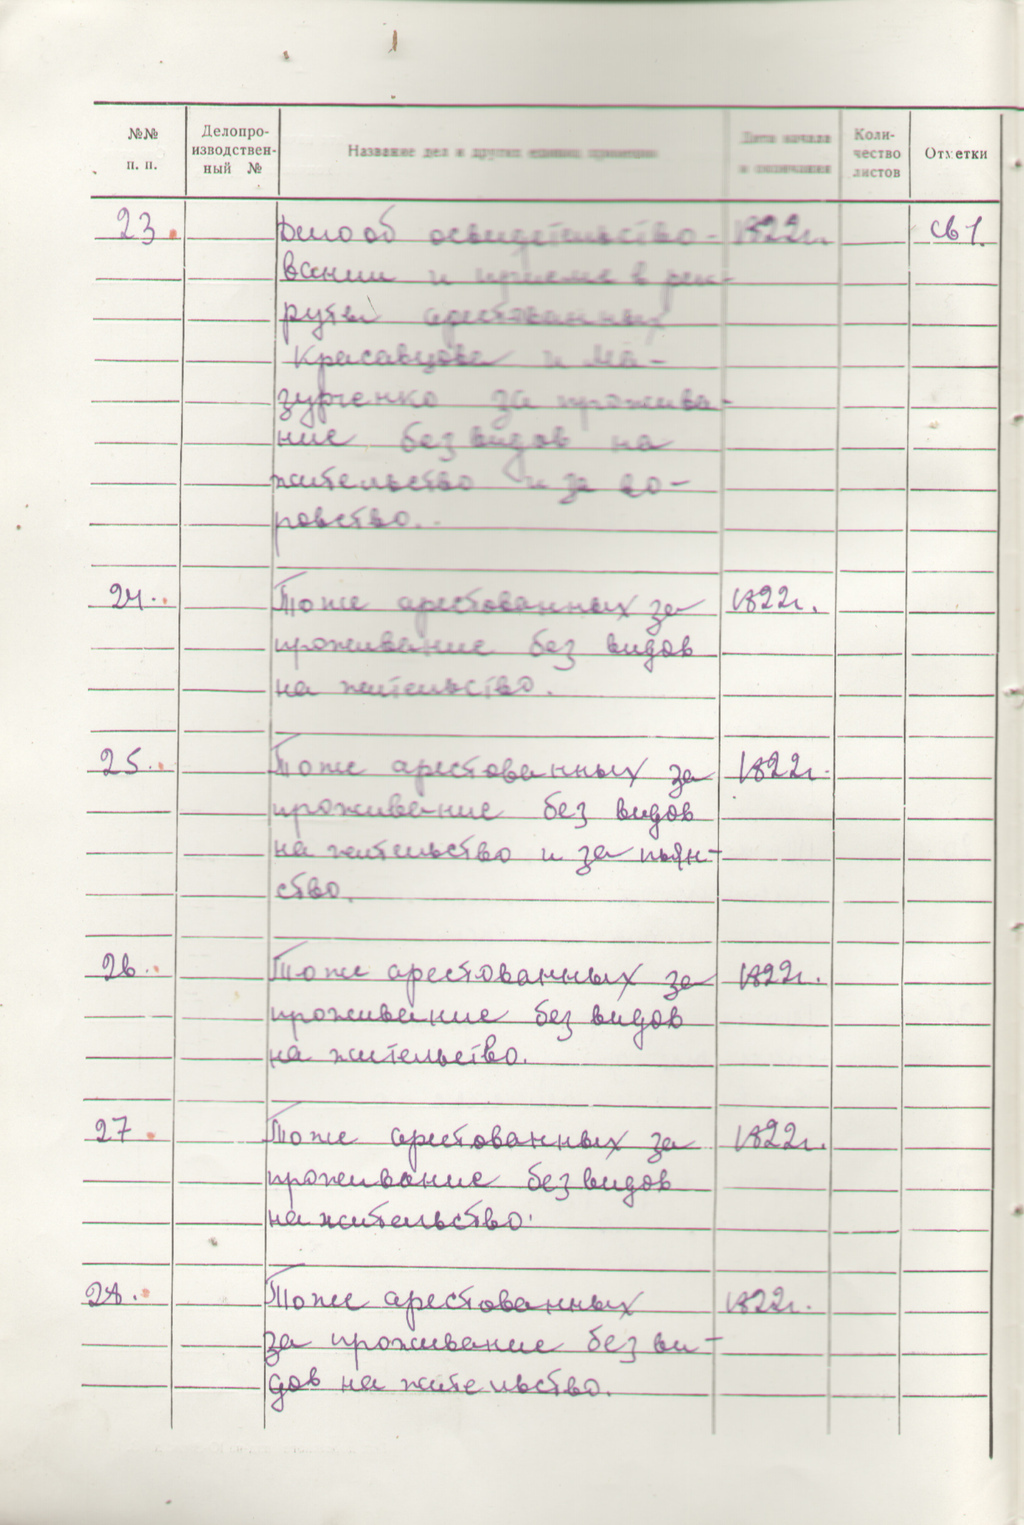 №№ п. п.
Делопро-
изводствен-
ный №
Название дел и других единиц хранения
Дата начала
и окончания
Коли-
чество
листов
Отметки
23. Дело об освидетельство- 1822г. св 1.
вании и приеме в рек-
руты арестованных
Красавцова и Ма-
зурченко за прожива-
ние без видов на
жительство и за во-
ровство.
24. То же арестованных за 1822г.
проживание без видов
на жительство.
25. То же арестованных за 1822г.
проживание без видов
на жительство и за пьян-
ство.
26. То же арестованных за 1822г.
проживание без видов
на жительство.
27. То же арестованных за 1822г.
проживание без видов
на жительство.
28. То же арестованных 1822г.
за проживание без ви-
дов на жительство.